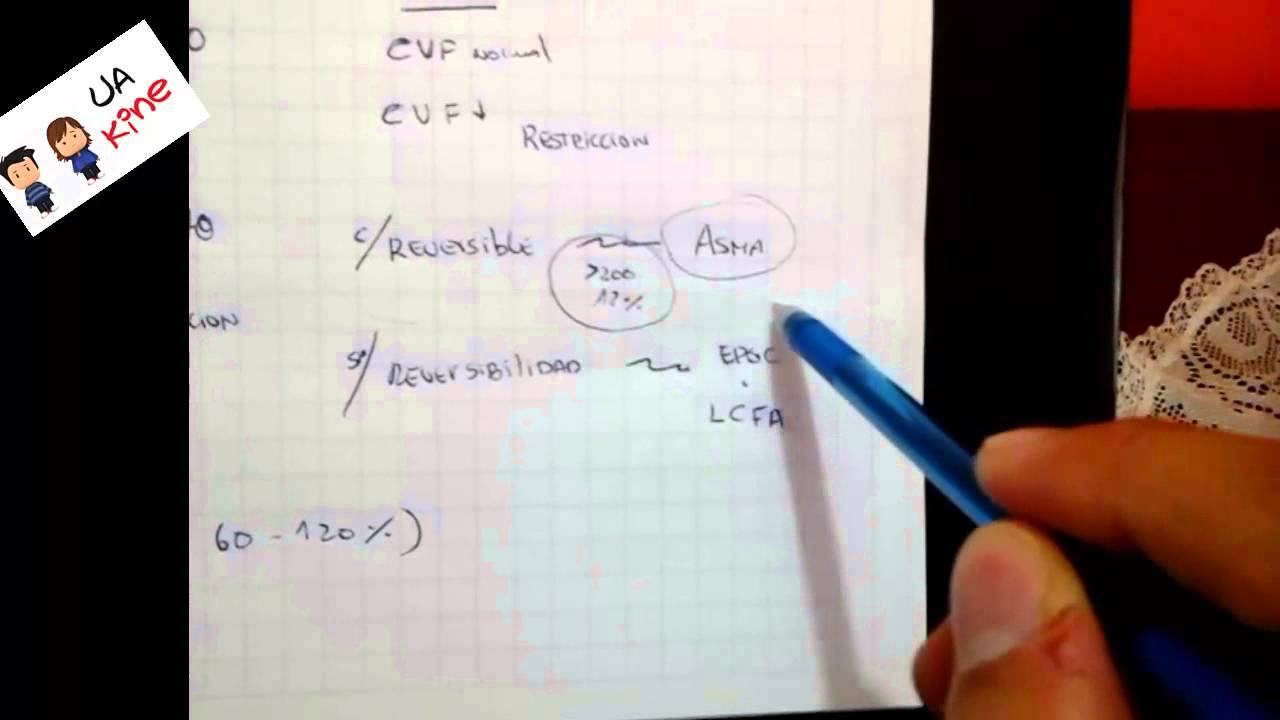 UA
Kine
O
CVF normal
CVF↓
RESTRICCION
C/REVERSIBLE
ASMA
>200
12%
CION
S/REVERSIBILIDAD
EPOC
LCFA
60 - 120%)